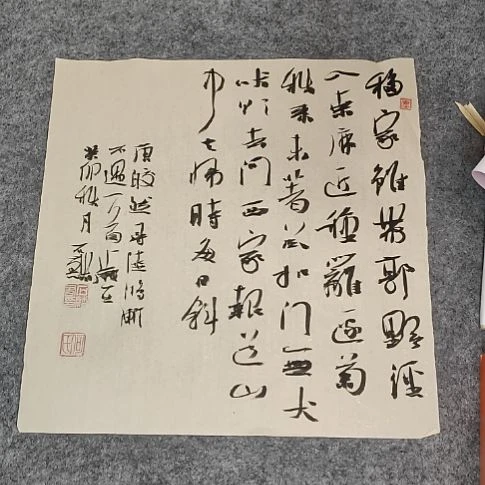 移家雖帶郭野徑
入桑麻近種籬邊菊
秋來未著花扣門無犬
吠欲去問西家報道山
中去歸時每日斜
唐皎然尋陸鴻漸
不遇一
癸卯秋月